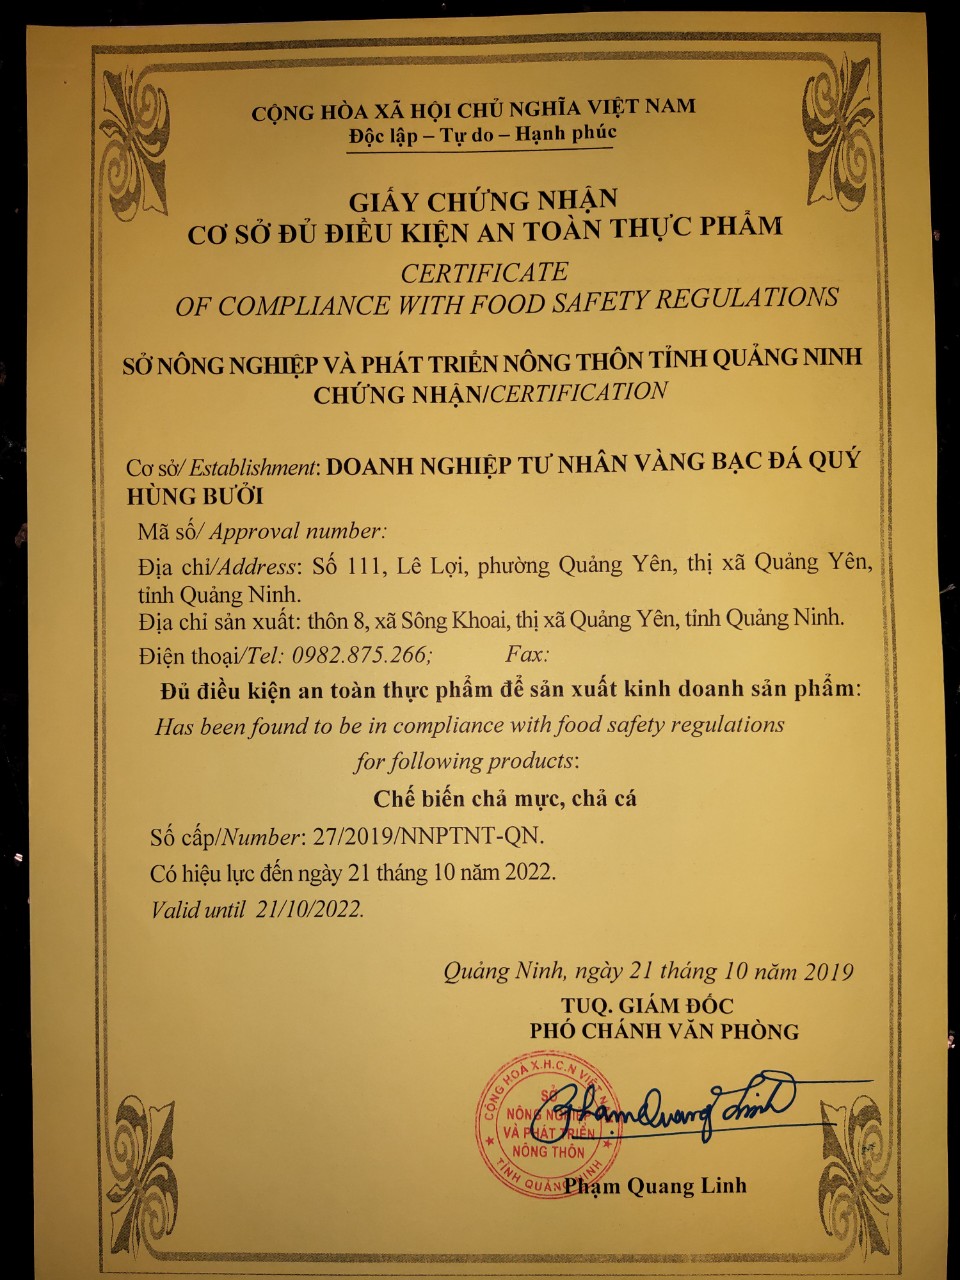 CỘNG HÒA XÃ HỘI CHỦ NGHĨA VIỆT NAM
Độc lập – Tự do – Hạnh phúc
GIẤY CHỨNG NHẬN
CƠ SỞ ĐỦ ĐIỀU KIỆN AN TOÀN THỰC PHẨM
CERTIFICATE
OF COMPLIANCE WITH FOOD SAFETY REGULATIONS
SỞ NÔNG NGHIỆP VÀ PHÁT TRIỂN NÔNG THÔN TỈNH QUẢNG NINH
CHỨNG NHẬN/CERTIFICATION
Cơ sở/ Establishment: DOANH NGHIỆP TƯ NHÂN VÀNG BẠC ĐÁ QUÝ
HÙNG BƯỞI
Mã số/ Approval number:
Địa chỉ/Address: Số 111, Lê Lợi, phường Quảng Yên, thị xã Quảng Yên,
tỉnh Quảng Ninh.
Địa chỉ sản xuất: thôn 8, xã Sông Khoai, thị xã Quảng Yên, tỉnh Quảng Ninh.
Điện thoại/Tel: 0982.875.266; Fax:
Đủ điều kiện an toàn thực phẩm để sản xuất kinh doanh sản phẩm:
Has been found to be in compliance with food safety regulations
for following products:
Chế biến chả mực, chả cá
Số cấp/Number: 27/2019/NNPTNT-QN.
Có hiệu lực đến ngày 21 tháng 10 năm 2022.
Valid until 21/10/2022.
Quảng Ninh, ngày 21 tháng 10 năm 2019
TUQ. GIÁM ĐỐC
PHÓ CHÁNH VĂN PHÒNG
CỘNG HÒA X.H.C.N VIỆT NAM
SỞ
NÔNG NGHIỆP
VÀ PHÁT TRIỂN
NÔNG THÔN
TỈNH QUẢNG NINH
Phạm Quang Linh
Phạm Quang Linh